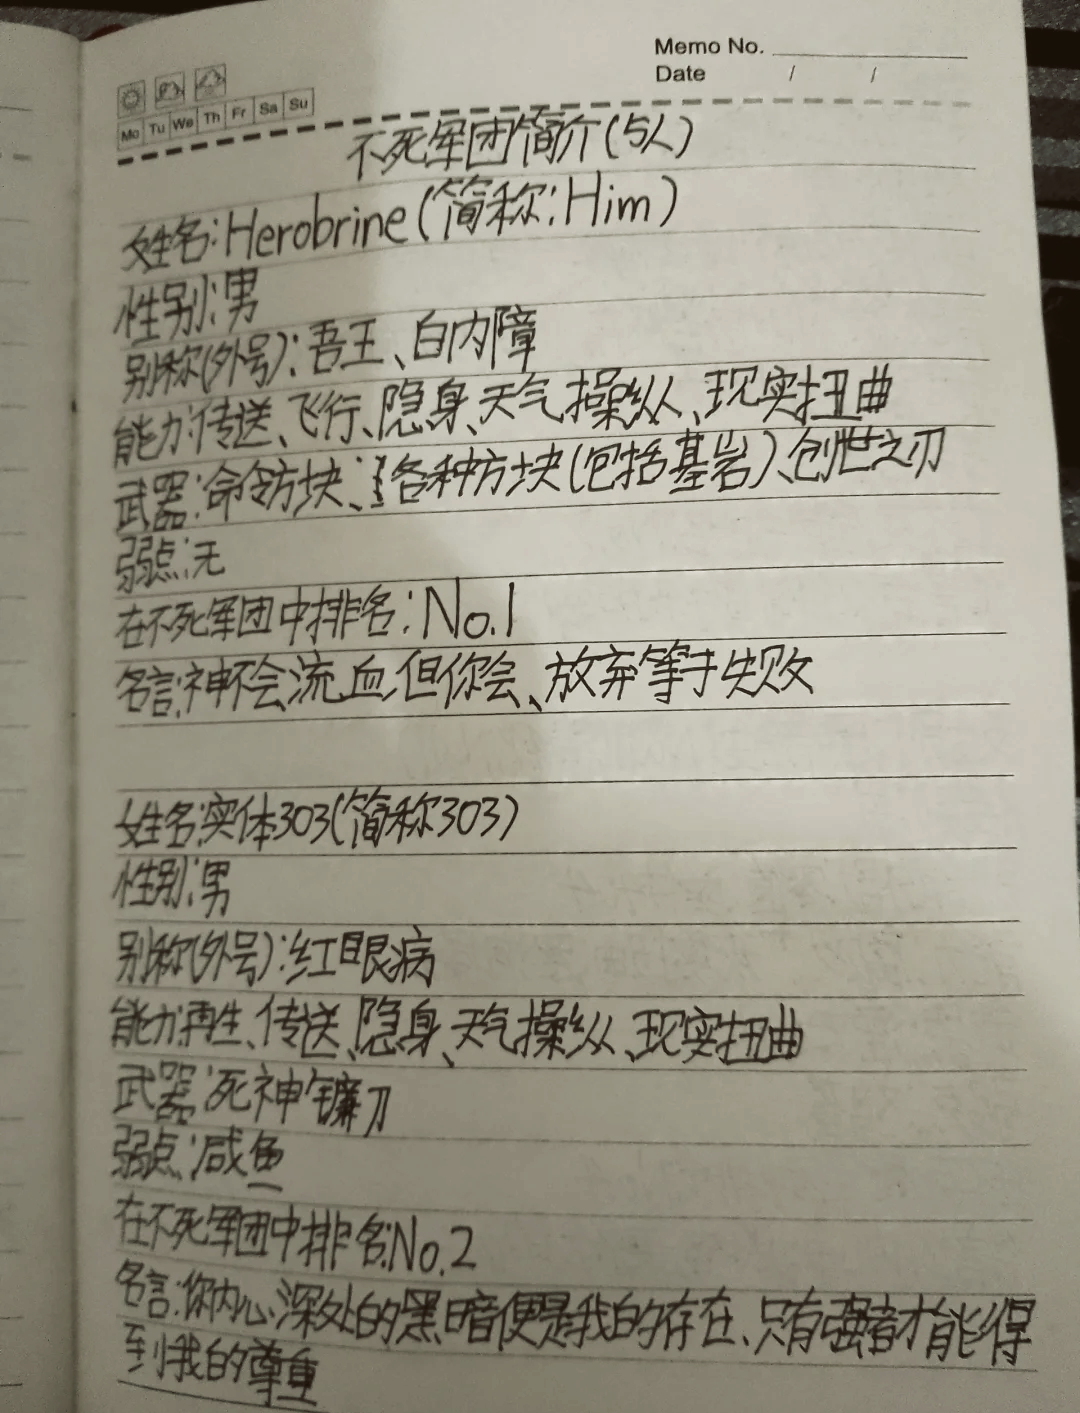 Memo No.
Date / /
Mo Tu We Th Fr Sa Su
不死军团简介(5人)
姓名:Herobrine(简称:Him)
性别:男
别称(外号):吾王、白内障
能力:传送、飞行、隐身、天气操纵、现实扭曲
武器:命令方块、各种方块(包括基岩)、创世之刃
弱点:无
在不死军团中排名:No.1
名言:神不会流血,但你会、放弃等于失败
姓名:实体303(简称303)
性别:男
别称(外号):红眼病
能力:再生、传送、隐身、天气操纵、现实扭曲
武器:死神镰刀
弱点:咸鱼
在不死军团中排名:No.2
名言:你内心深处的黑暗便是我的存在、只有强者才能得
到我的尊重